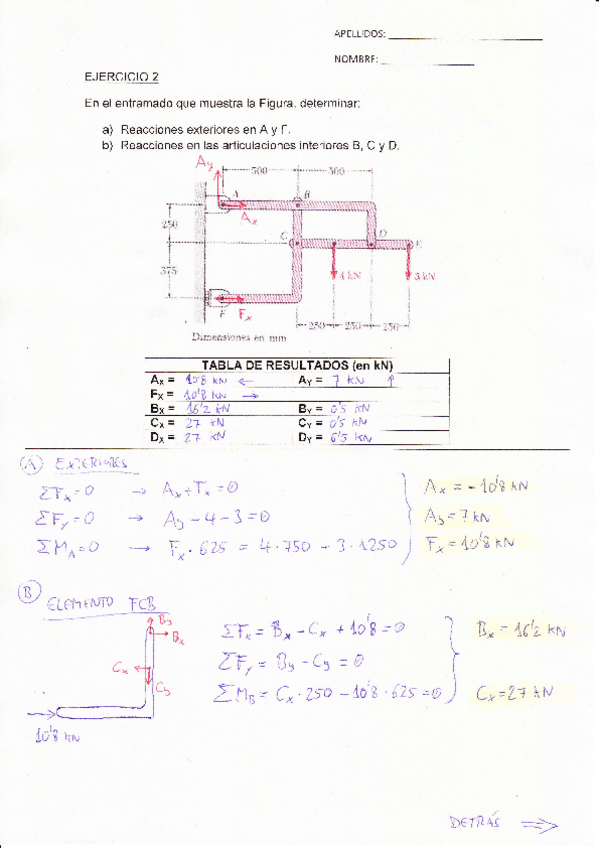 APELLIDOS:
NOMBRE:
EJERCICIO 2
En el entramado que muestra la Figura, determinar:
a) Reacciones exteriores en A y F.
b) Reacciones en las articulaciones interiores B, C y D.
Ay
500 500
A B
Ax
250
C D E
375
4 kN 3 kN
F Fx
250 250 250
Dimensiones en mm
TABLA DE RESULTADOS (en kN)
AX = 10'8 kN ← AY = 7 kN ↑
FX = 10'8 kN →
BX = 16'2 kN BY = 0'5 kN
CX = 27 kN CY = 0'5 kN
DX = 27 kN DY = 6'5 kN
A EXTERIORES
ΣFx=0 → Ax+Fx=0 Ax = -10'8 kN
ΣFy=0 → Ay-4-3=0 Ay=7 kN
ΣMA=0 → Fx·625 = 4·750 - 3·1250 Fx=10'8 kN
B ELEMENTO FCB
By
Bx
Cx
Cy
10'8 kN
ΣFx = Bx - Cx + 10'8 = 0 Bx = 16'2 kN
ΣFy = By - Cy = 0
ΣMB = Cx·250 - 10'8·625 = 0 Cx = 27 kN
DETRÁS ⇒